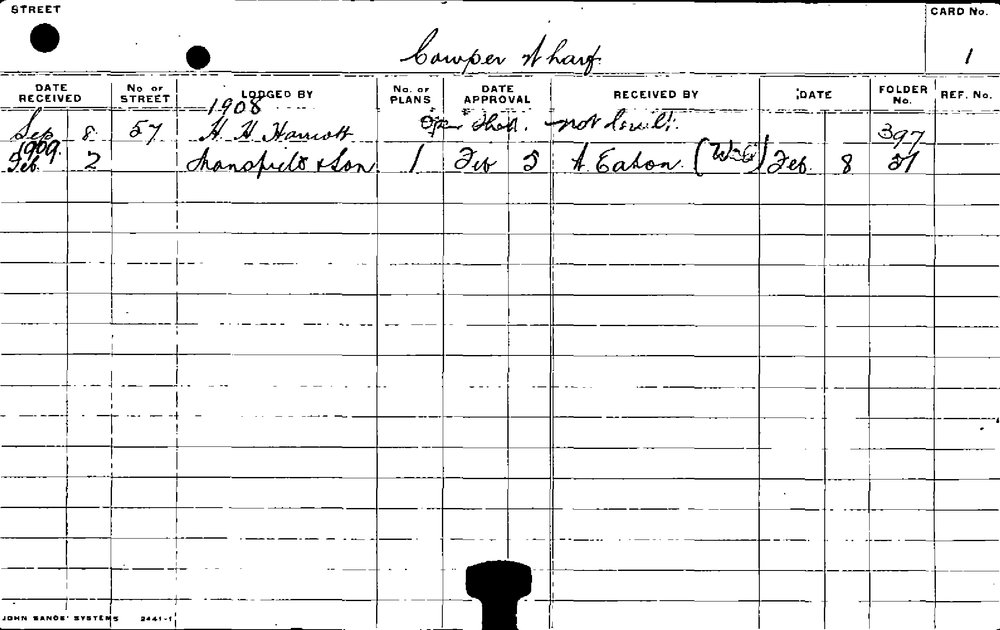 STREET
CARD No.
Cowper Wharf
1
DATE RECEIVED No. OF STREET LODGED BY No. OF PLANS DATE APPROVAL RECEIVED BY DATE FOLDER No. REF. No.
1908
Sep 8 57 H. H. Harriott Open Shed. not
397
1909
Feb 2 Mansfield & Son 1 Feb 5 A. Eaton Feb. 8 21
JOHN SANDS' SYSTEMS 2441-1